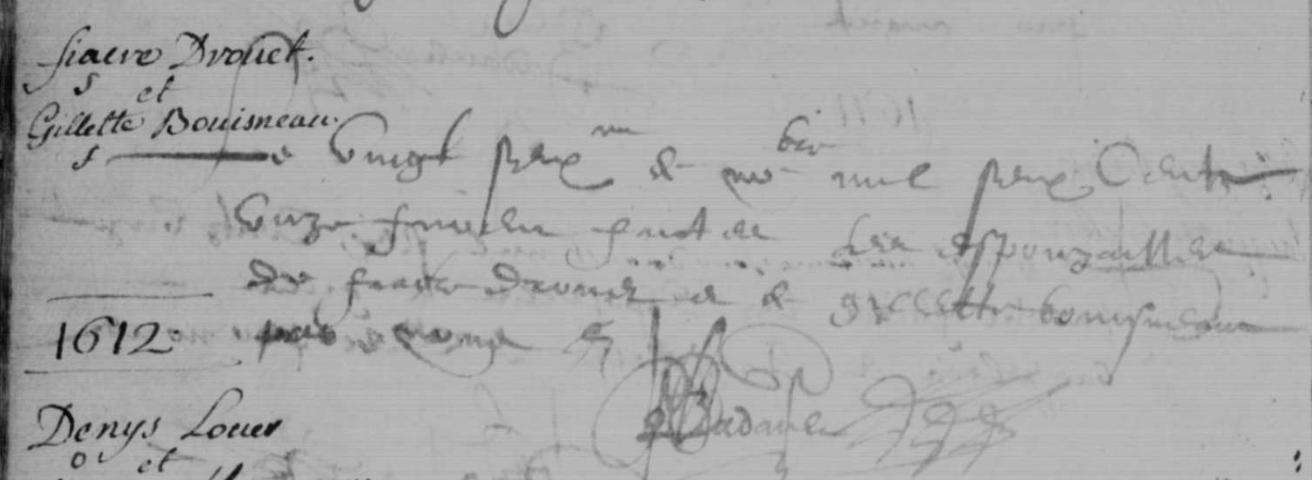 fiacre Drouet.
et
Gillette Bouisneau.
Vingt sixe^me de no^bre mil six Centz
Unze furent faictes les espouzailles
de fiacre drouet & gillette bouisneau
1612
par moy
Badault
Denys Loues
et